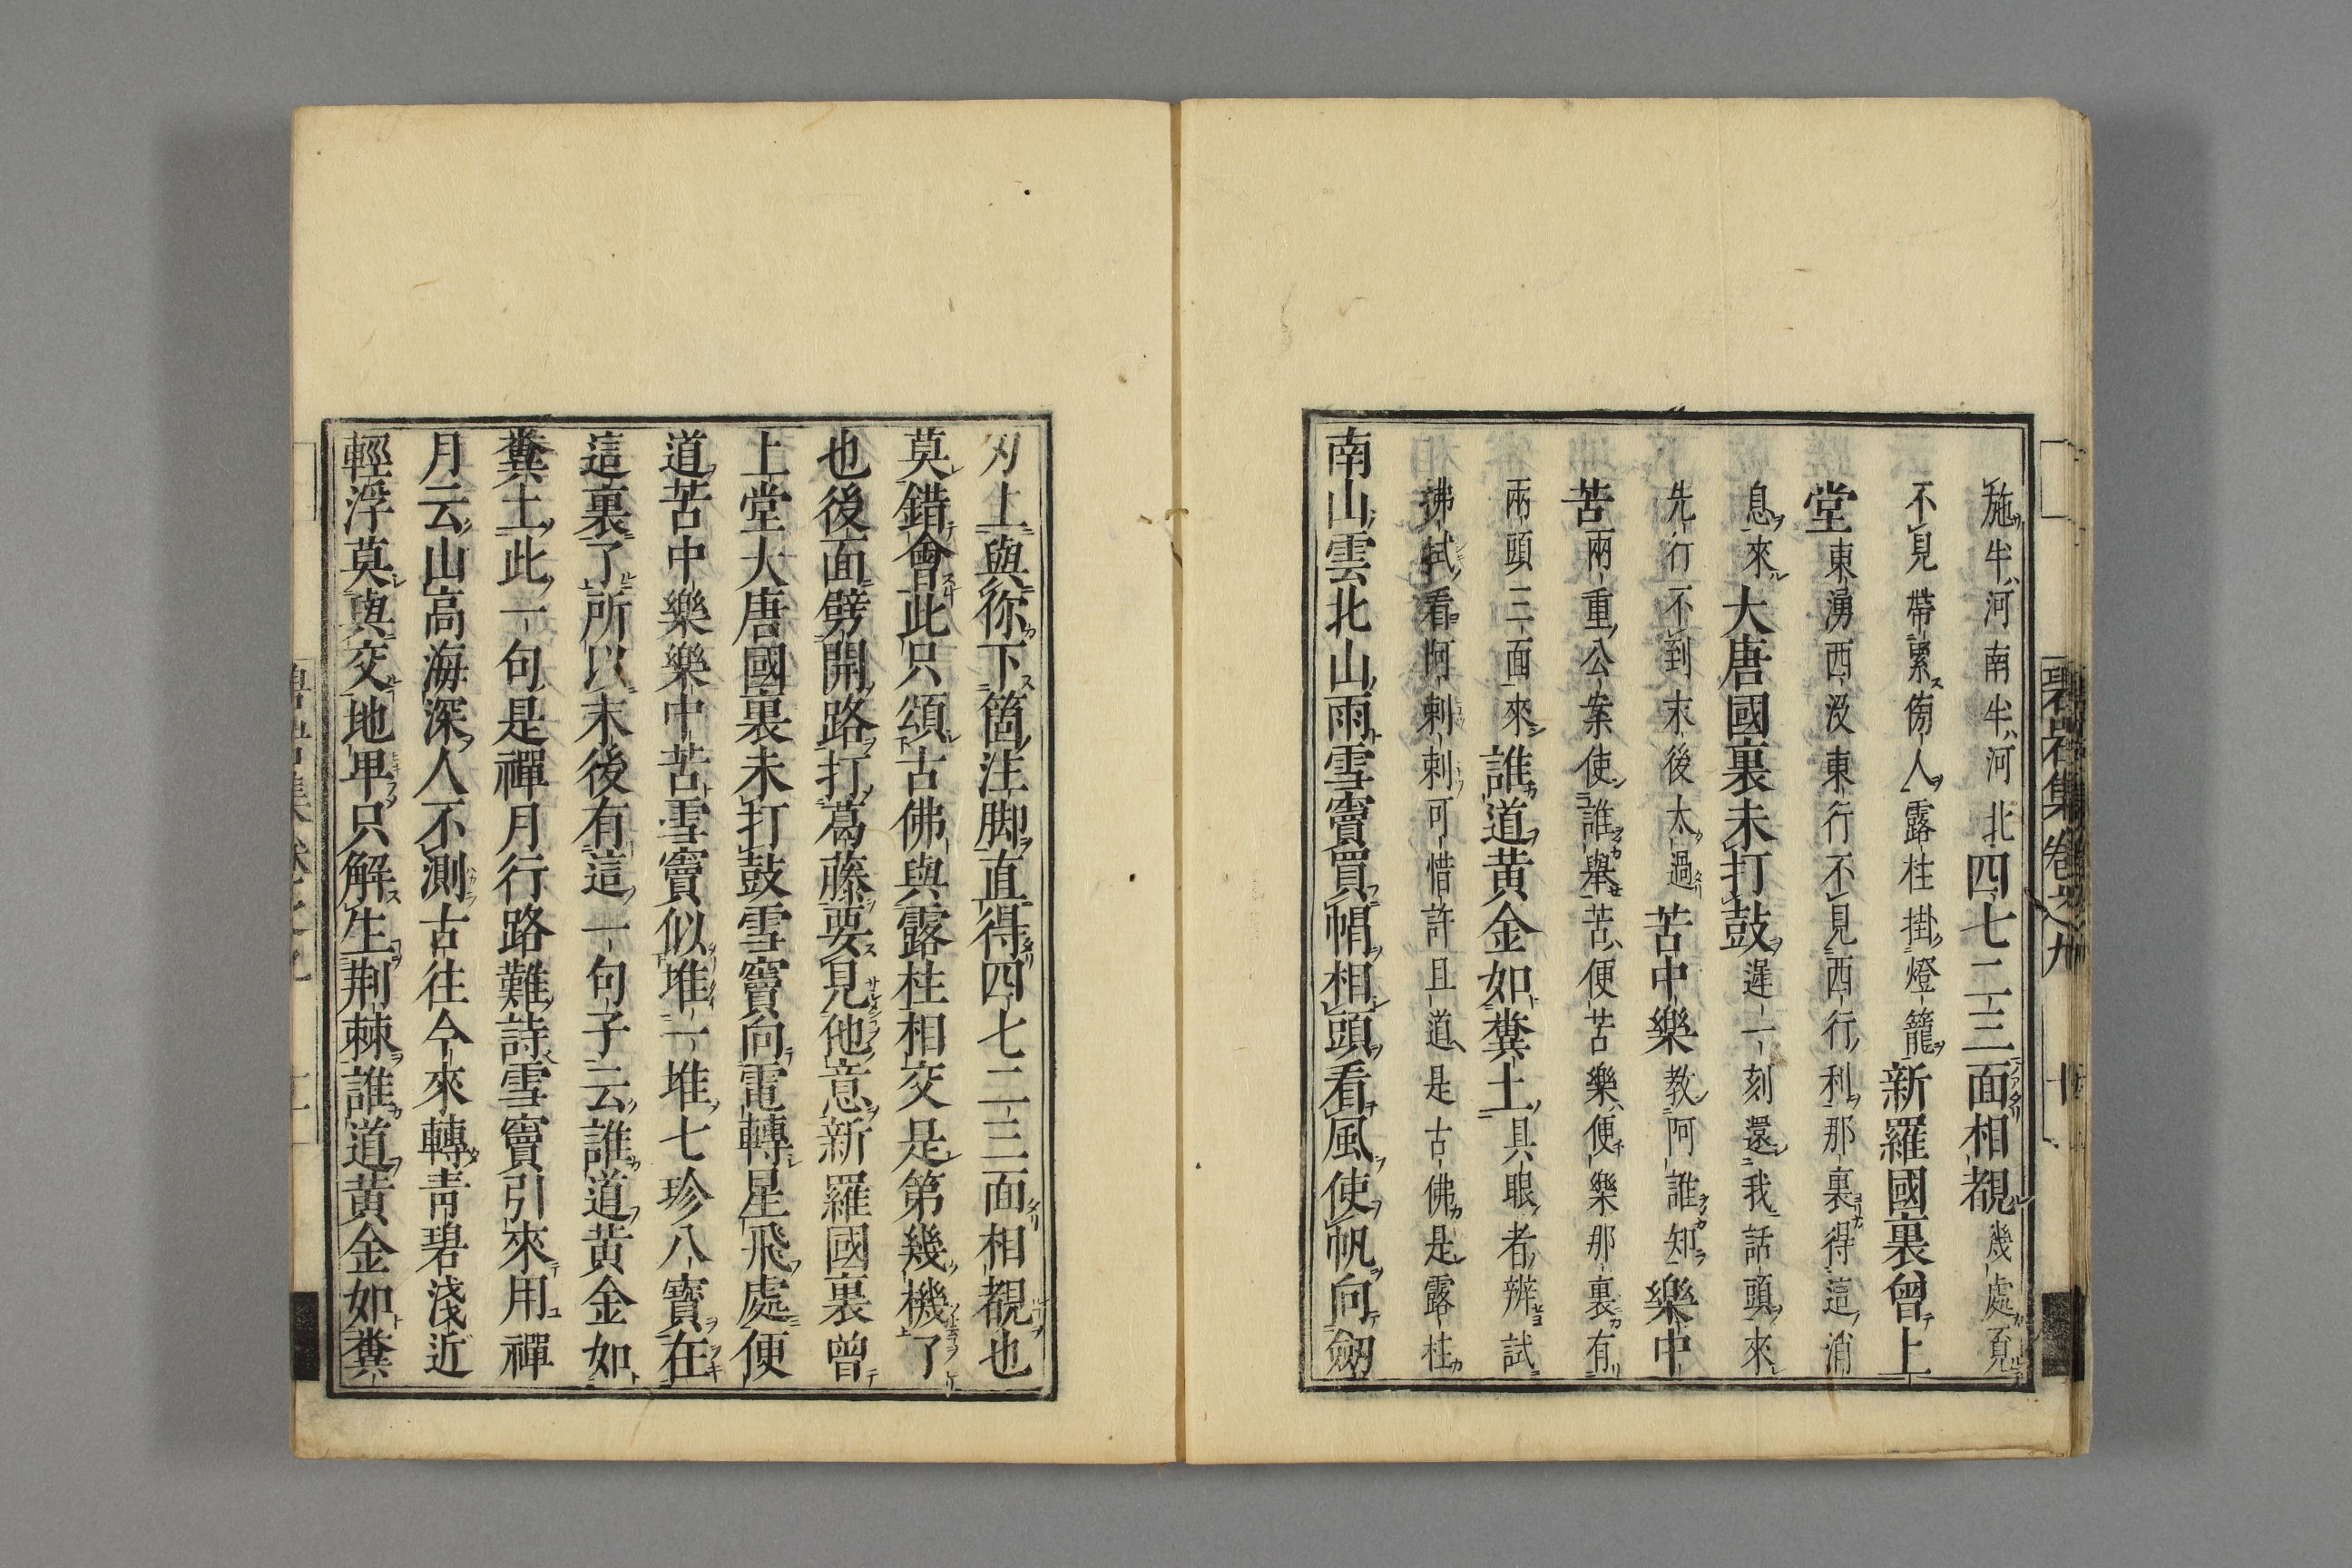 施半河南半河北四七二三面相覩幾處覓
不見帶累傍人露柱掛燈籠新羅國裏曾上
堂東湧西没東行不見西行利那裏得這消
息來大唐國裏未打鼓遲一刻還我話頭來
先行不到末後太過苦中樂教阿誰知樂中
苦兩重公案使誰擧苦便苦樂便樂那裏有
兩頭三面來誰道黄金如糞土具眼者辨試
拂拭看阿剌剌可惜許且道是古佛是露柱
南山雲北山雨雪竇買帽相頭看風使帆向劒
刃上與你下箇注脚直得四七二三面相覩也
莫錯會此只頌古佛與露柱相交是第幾機了
也後面劈開路打葛藤要見他意新羅國裏曾
上堂大唐國裏未打鼓雪竇向電轉星飛處便
道苦中樂樂中苦雪竇似堆一堆七珍八寳在
這裏了所以末後有這一句子云誰道黄金如
糞土此一句是禪月行路難詩雪竇引來用禪
月云山高海深人不測古往今來轉靑碧淺近
輕浮莫與交地卑只解生荆棘誰道黄金如糞